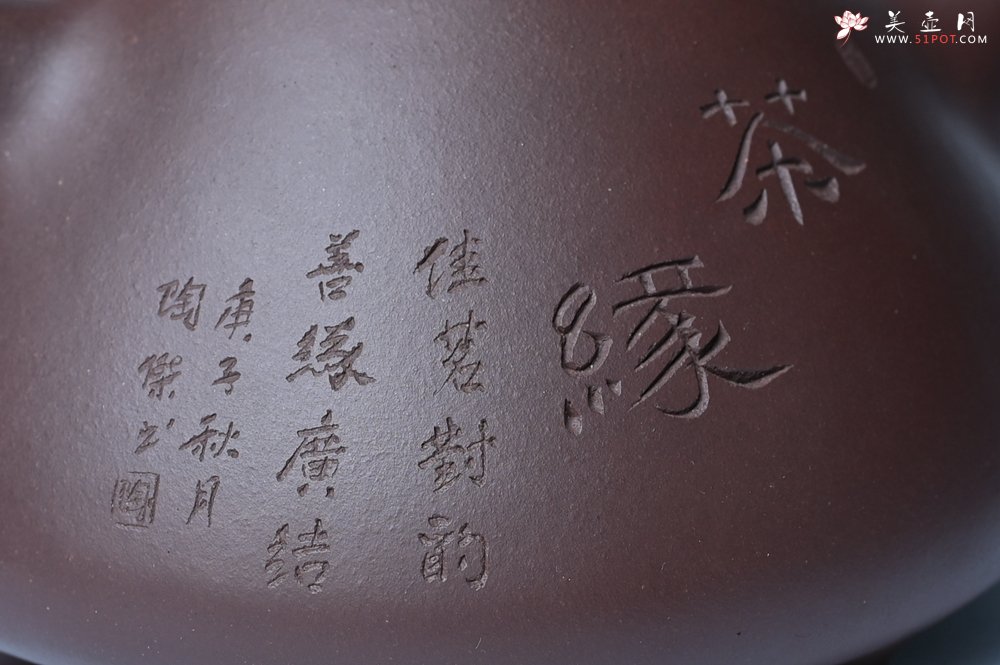 美壶网
WWW.51POT.COM
茶緣
佳茗對韵
善缘廣结
庚子秋月
陶傑书
陶